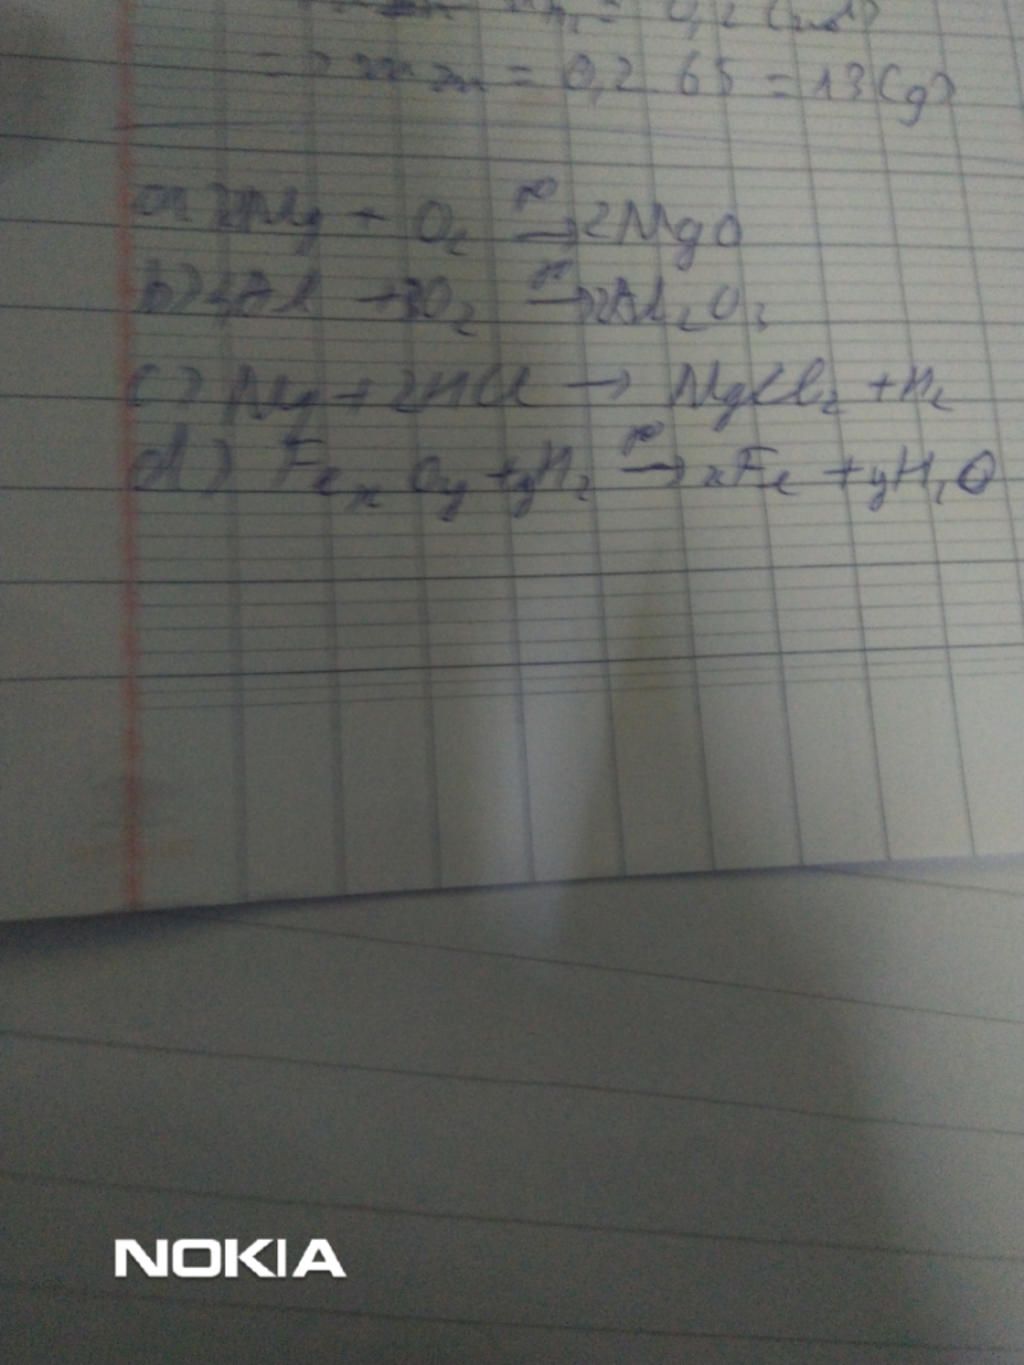 = 0,2 (mol)
=> m Zn = 0,2 65 = 13 (g)
a) 2Mg + O2 t° → 2MgO
b) 4Al + 3O2 t° → 2Al2O3
c) Mg + 2HCl → MgCl2 + H2
d) FexOy + yH2 t° → xFe + yH2O
NOKIA